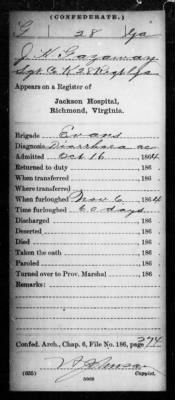 (CONFEDERATE.)
G 28 Ga
J. H.
Sgt. Co. K. 28 Regt Ga
Appears on a Register of
Jackson Hospital,
Richmond, Virginia.
Brigade Evans
Diagnosis Diarrhoea ac
Admitted Oct 16 , 1864
Returned to duty , 186 .
When transferred , 186 .
Where transferred
When furloughed Nov 6 , 1864
Time furloughed 60 days
Discharged , 186 .
Deserted , 186 .
Died , 186 .
Taken the oath , 186 .
Paroled , 186 .
Turned over to Prov. Marshal , 186 .
Remarks:
Confed. Arch., Chap. 6, File No. 186, page 274
(635) Copyist.